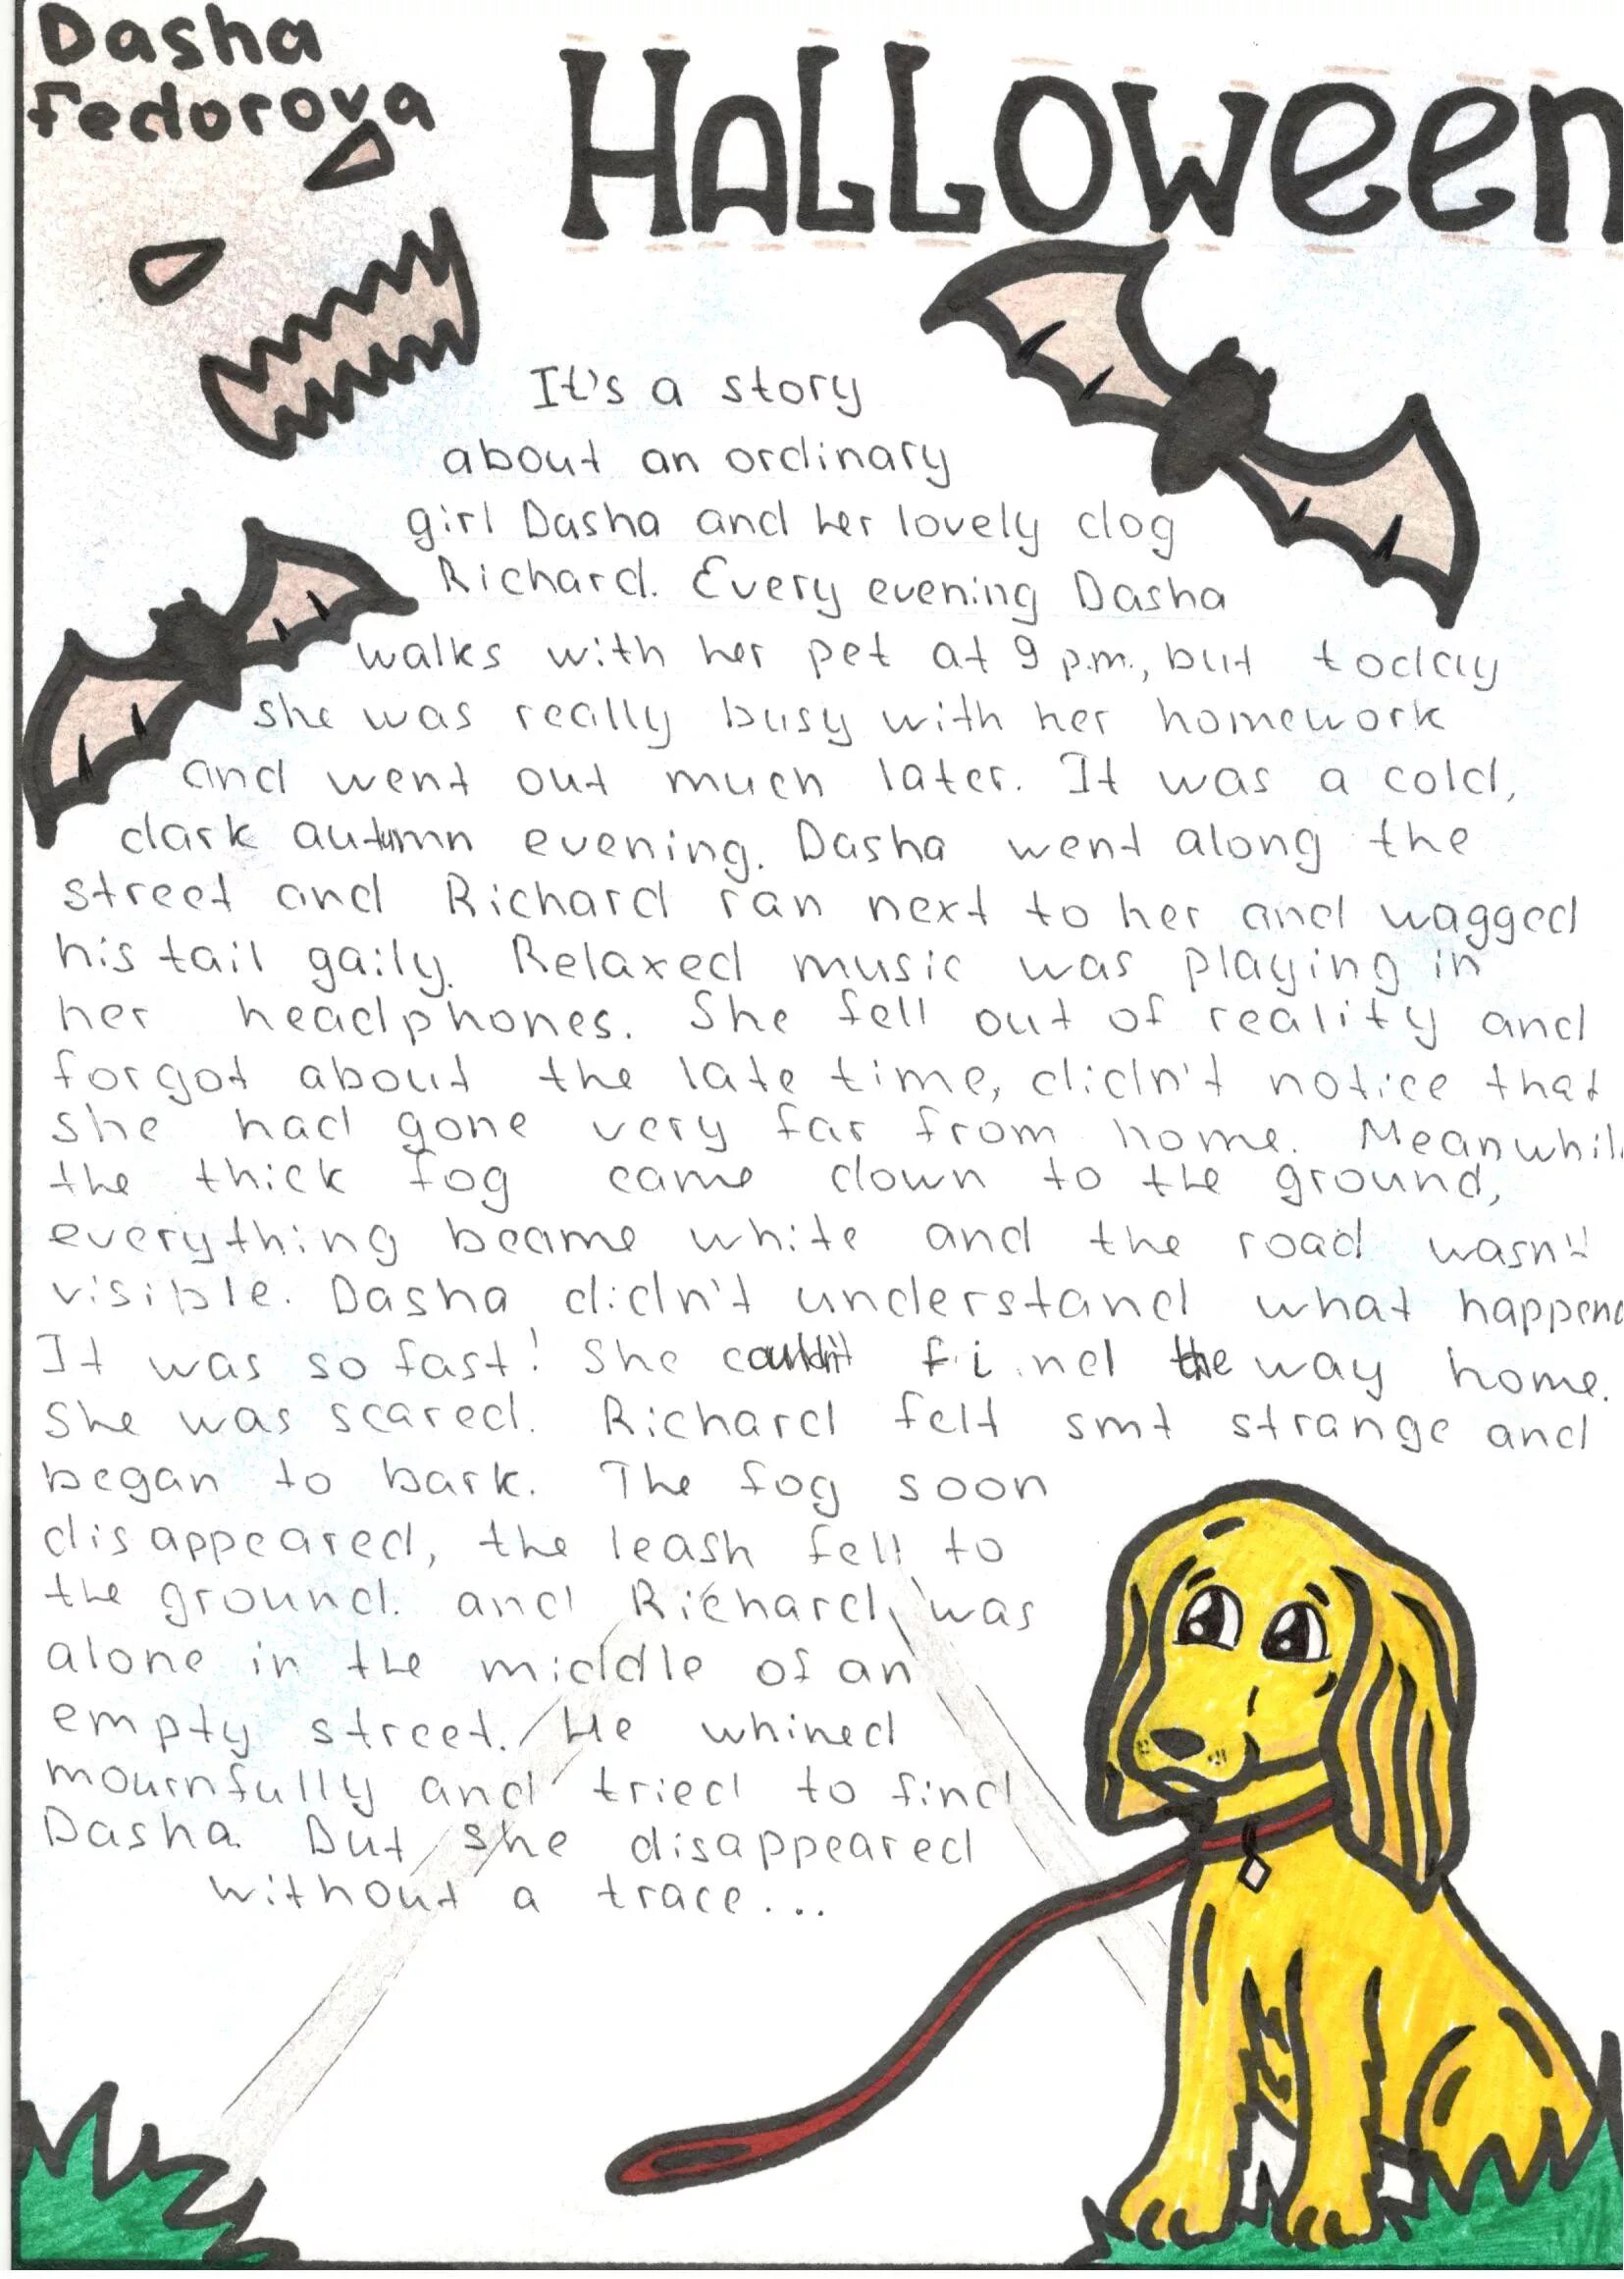 Dasha
Fedorova
HALLOWeen
It's a story
about an ordinary
girl Dasha and her lovely dog
Richard. Every evening Dasha
walks with her pet at 9 p.m., but today
she was really busy with her homework
and went out much later. It was a cold,
dark autumn evening. Dasha went along the
street and Richard ran next to her and wagged
his tail gaily. Relaxed music was playing in
her headphones. She fell out of reality and
forgot about the late time, didn't notice that
she had gone very far from home. Meanwhil
the thick fog came down to the ground,
everything became white and the road wasn't
visible. Dasha didn't understand what happend
It was so fast! She couldn't find the way home.
She was scared. Richard felt smt strange and
began to bark. The fog soon
disappeared, the leash fell to
the ground. and Richard was
alone in the middle of an
empty street. He whined
mournfully and tried to find
Dasha. But she disappeared
without a trace...